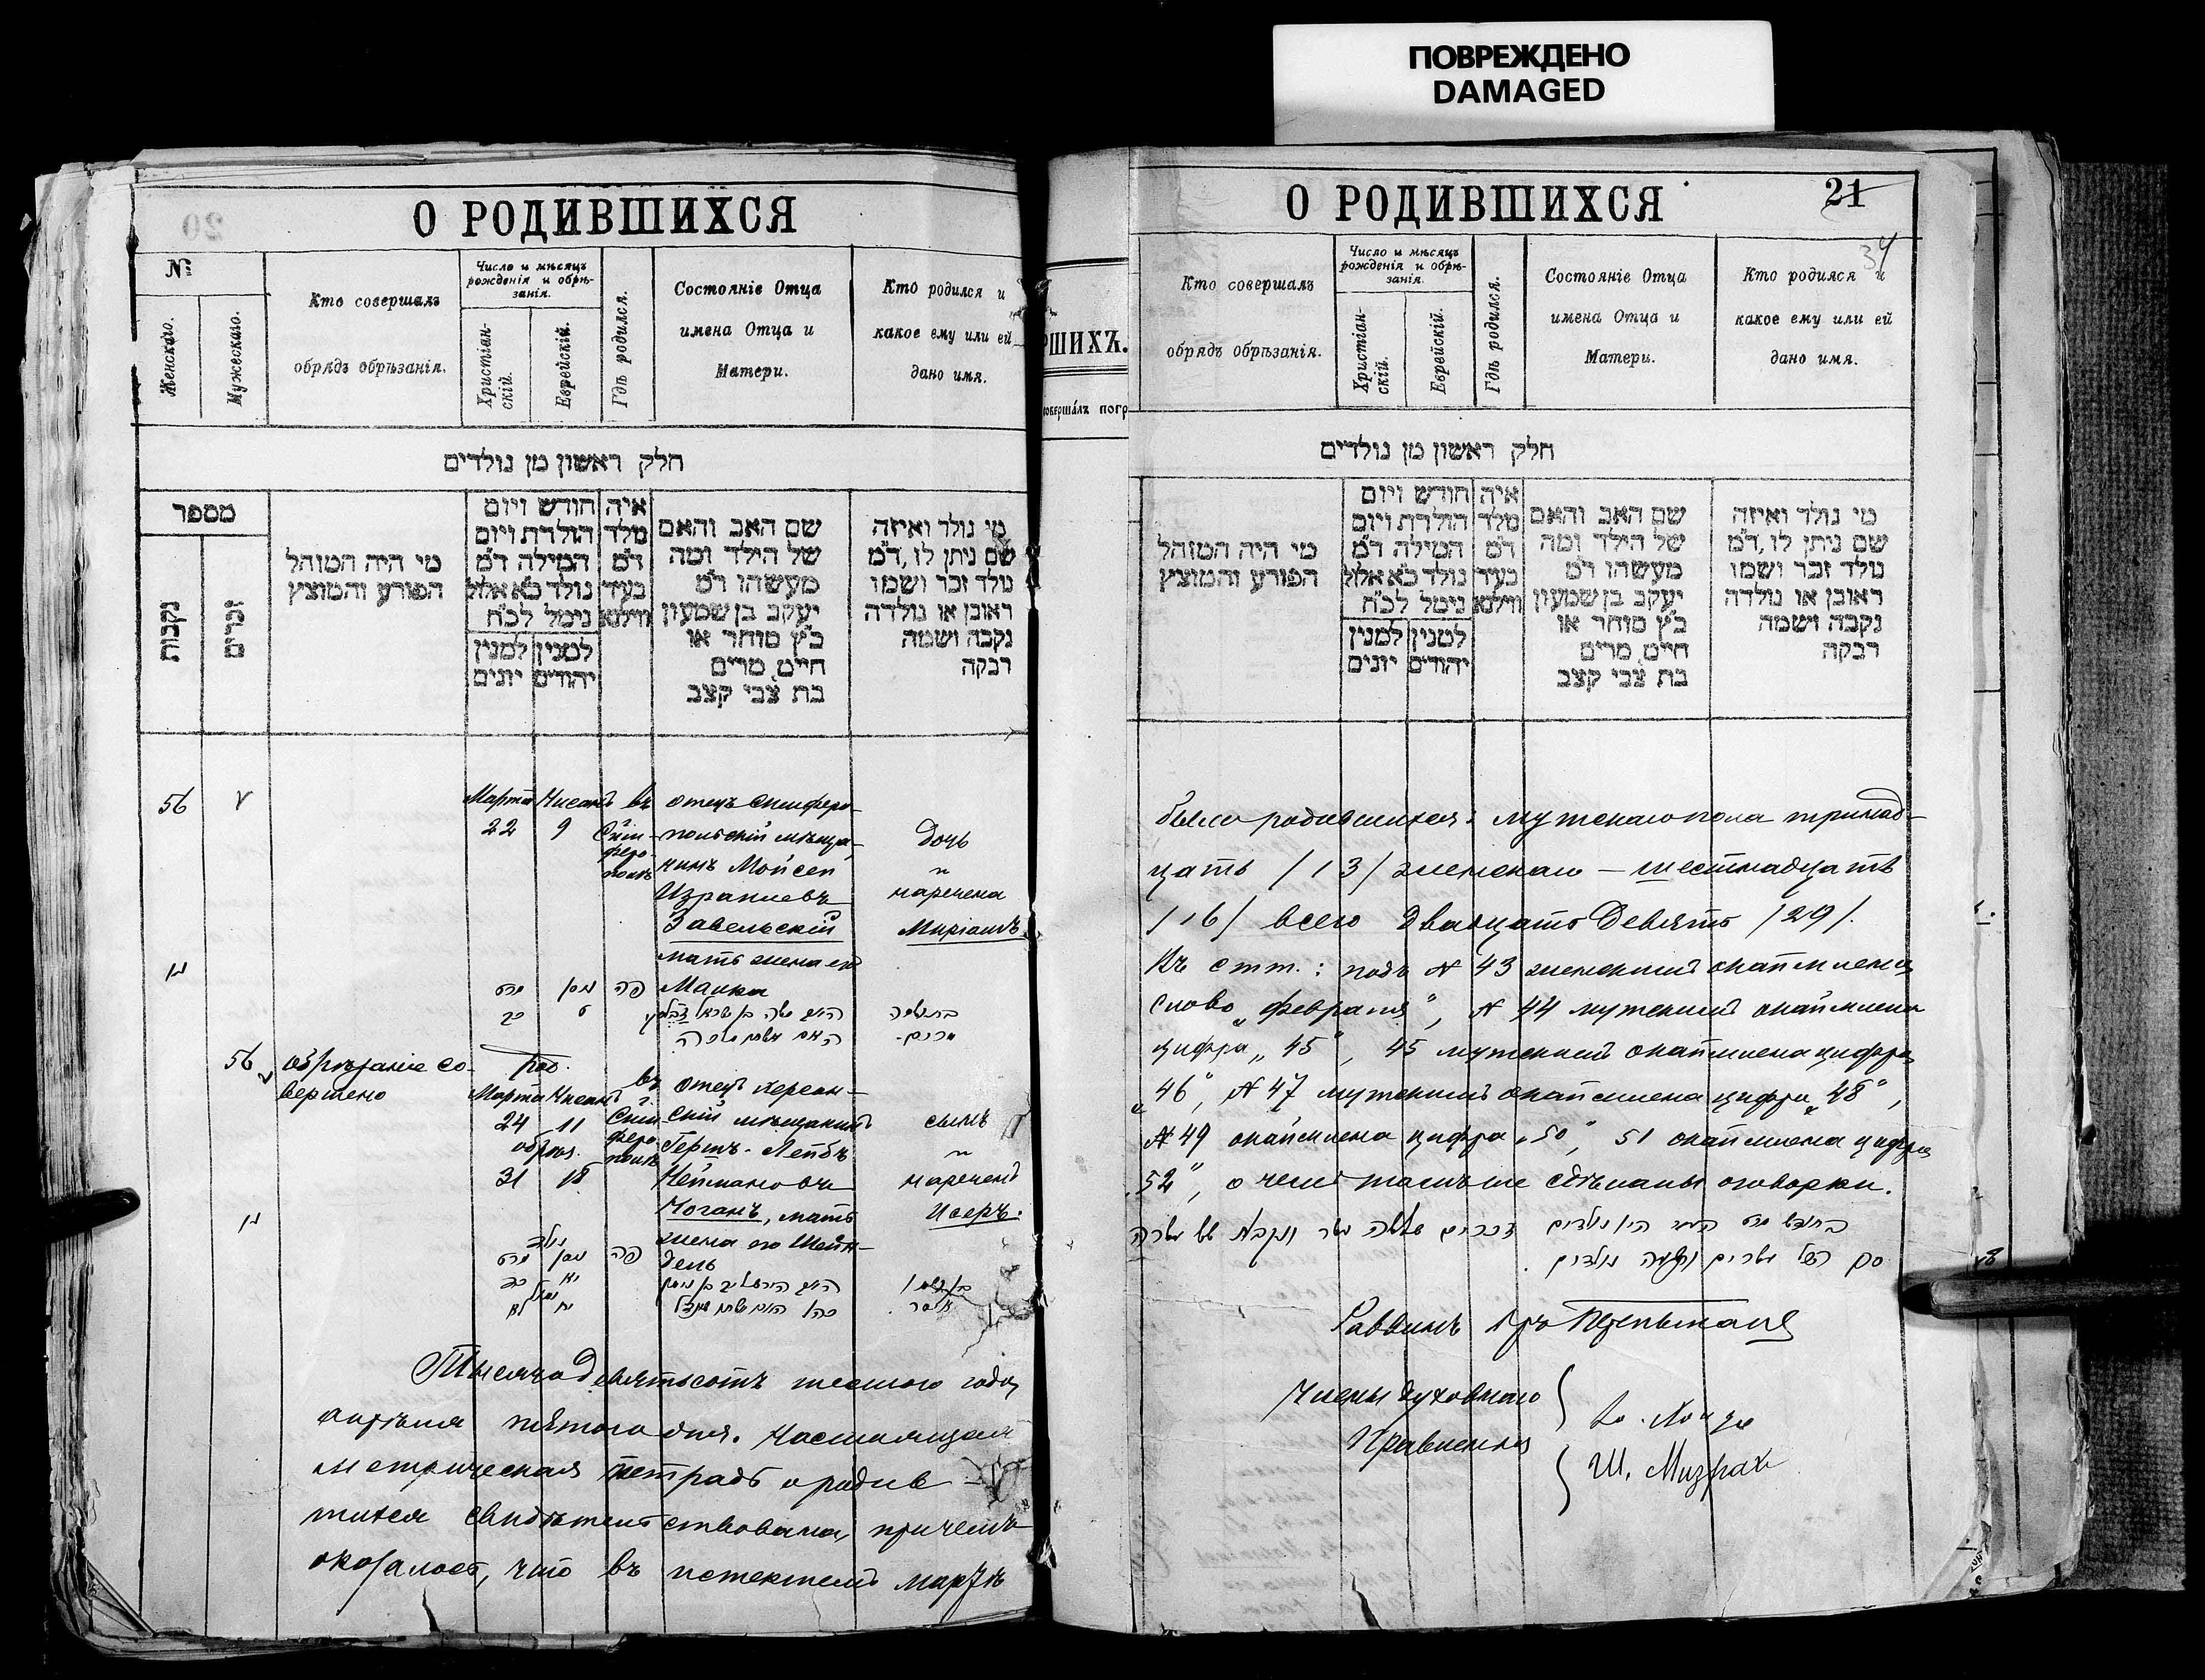 ПОВРЕЖДЕНО
DAMAGED
О РОДИВШИХСЯ
20
№
Женскаго.
Мужескаго.
Кто совершалъ
обрядъ обрѣзанія.
Число и мѣсяцъ
рожденія и обрѣ-
занія.
Христіан-
скій.
Еврейскій.
Гдѣ родился.
Состояніе Отца
имена Отца и
Матери.
Кто родился и
какое ему или ей
дано имя.
חלק ראשון מן נולדים
מספר
נקבות
זכרים
מי היה המוהל
הפורע והמוצץ
חודש ויום
הולדת ויום
המילה ד״מ
נולד כ״א אלול
נימל לכ״ח
למנין למנין
יהודים יונים
איה
מלד
ד״מ
בעיר
ווילנא
שם האב והאם
של הילד ומה
מעשהו ד״מ
יעקב בן שמעון
כ״ץ סוחר או
חייט מרים
בת צבי קצב
מי נולד ואיזה
שם ניתן לו, ד״מ
נולד זכר ושמו
ראובן או נולדה
נקבה ושמה
רבקה
56
Марта Нисанъ въ отецъ симферо-
22 9 Сим- польскій мѣща- дочь
феро- нинъ Мойсей
поль Израилевъ наречена
Завельскій Миріамъ
мать жена его
פה Малка
56 обрѣзаніе со- род.
вершено Марта Нисанъ въ отецъ херсон-
24 11 Сим- скій мѣщанинъ сынъ
обрѣз. феро- Герш-Лейбъ
31 18 поль Нейманъ
Коганъ, мать нареченъ
жена его Шейн- Исеръ.
פה дель
Тысяча девятьсотъ шестого года,
апрѣля пятого дня. Настоящая
метрическая тетрадь о родив-
шихся свидѣтельствована, причемъ
оказалось, что въ истекшемъ мартѣ
РШИХЪ.
овершáлъ погр
О РОДИВШИХСЯ
21
34
Кто совершалъ
обрядъ обрѣзанія.
Число и мѣсяцъ
рожденія и обрѣ-
занія.
Христіан-
скій.
Еврейскій.
Гдѣ родился.
Состояніе Отца
имена Отца и
Матери.
Кто родился и
какое ему или ей
дано имя.
חלק ראשון מן נולדים
מי היה המוהל
הפורע והמוצץ
חודש ויום
הולדת ויום
המילה ד״מ
נולד כ״א אלול
נימל לכ״ח
למנין למנין
יהודים יונים
איה
מלד
ד״מ
בעיר
ווילנא
שם האב והאם
של הילד ומה
מעשהו ד״מ
יעקב בן שמעון
כ״ץ סוחר או
חייט מרים
בת צבי קצב
מי נולד ואיזה
שם ניתן לו, ד״מ
נולד זכר ושמו
ראובן או נולדה
נקבה ושמה
רבקה
было родившихся: мужскаго пола тринад-
цать /13/ женскаго — шестнадцать
/16/ всего двадцать девять /29/.
Къ стт.: подъ № 43 женскимъ окаймлено
слово „февраля“, № 44 мужскимъ окаймлена
цифра „45“, 45 мужскимъ окаймлена цифра
„46“, № 47 мужскимъ окаймлена цифра „48“,
№ 49 окаймлена цифра „50“, 51 окаймлена цифра
„52“, о чемъ тамъ же сдѣланы оговорки.
Раввинъ
Члены духовнаго
Правленія
Ш. Мизрахи